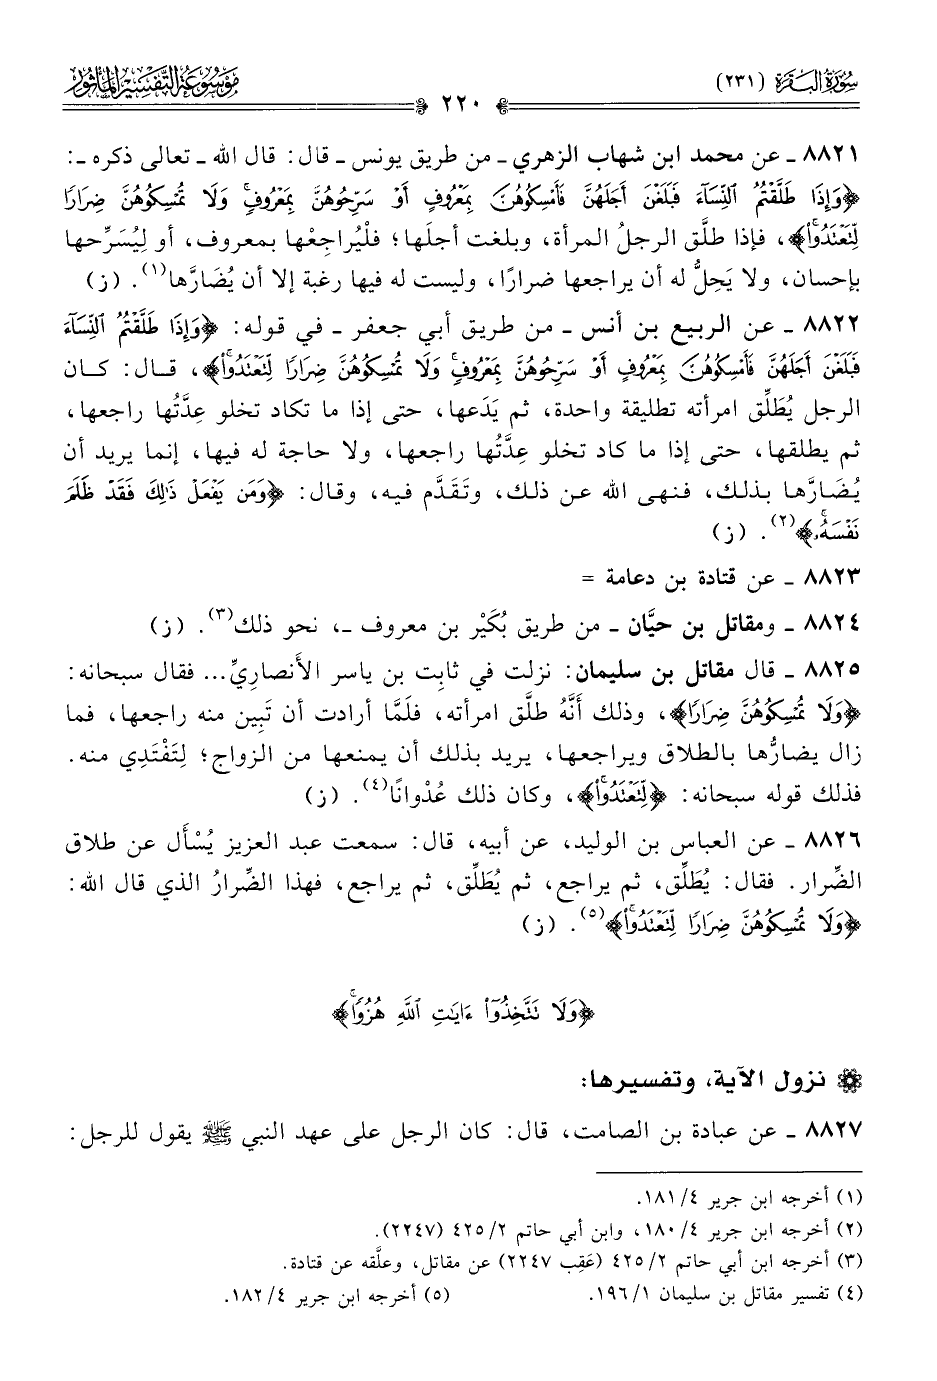 سُورَةُ البَقَرَةِ (٢٣١)
٢٢٠
مَوْسُوعَةُ التَّفْسِيرِ المَأْثُور
٨٨٢١ ـ عن محمد ابن شهاب الزهري ـ من طريق يونس ـ قال: قال الله ـ تعالى ذكره ـ:
﴿وَإِذَا طَلَّقْتُمُ ٱلنِّسَآءَ فَبَلَغْنَ أَجَلَهُنَّ فَأَمْسِكُوهُنَّ بِمَعْرُوفٍ أَوْ سَرِّحُوهُنَّ بِمَعْرُوفٍۚ وَلَا تُمْسِكُوهُنَّ ضِرَارًا
لِّتَعْتَدُواْۚ﴾، فإذا طلَّق الرجلُ المرأة، وبلغت أجلَها؛ فلْيُراجِعْها بمعروف، أو لِيُسَرِّحها
بإحسان، ولا يَحِلُّ له أن يراجعها ضرارًا، وليست له فيها رغبة إلا أن يُضَارَّها(١). (ز)
٨٨٢٢ ـ عن الربيع بن أنس ـ من طريق أبي جعفر ـ في قوله: ﴿وَإِذَا طَلَّقْتُمُ ٱلنِّسَآءَ
فَبَلَغْنَ أَجَلَهُنَّ فَأَمْسِكُوهُنَّ بِمَعْرُوفٍ أَوْ سَرِّحُوهُنَّ بِمَعْرُوفٍۚ وَلَا تُمْسِكُوهُنَّ ضِرَارًا لِّتَعْتَدُواْۚ﴾، قال: كان
الرجل يُطَلِّق امرأته تطليقة واحدة، ثم يَدَعها، حتى إذا ما تكاد تخلو عِدَّتُها راجعها،
ثم يطلقها، حتى إذا ما كاد تخلو عِدَّتُها راجعها، ولا حاجة له فيها، إنما يريد أن
يُضَارَّها بذلك، فنهى الله عن ذلك، وتَقَدَّم فيه، وقال: ﴿وَمَن يَفْعَلْ ذَٰلِكَ فَقَدْ ظَلَمَ
نَفْسَهُۥۚ﴾(٢). (ز)
٨٨٢٣ ـ عن قتادة بن دعامة =
٨٨٢٤ ـ ومقاتل بن حيَّان ـ من طريق بُكَيْر بن معروف ـ، نحو ذلك(٣). (ز)
٨٨٢٥ ـ قال مقاتل بن سليمان: نزلت في ثابِت بن ياسر الأنصاريِّ... فقال سبحانه:
﴿وَلَا تُمْسِكُوهُنَّ ضِرَارًا﴾، وذلك أنَّهُ طلَّق امرأته، فلَمَّا أرادت أن تَبِين منه راجعها، فما
زال يضارُّها بالطلاق ويراجعها، يريد بذلك أن يمنعها من الزواج؛ لِتَفْتَدِي منه.
فذلك قوله سبحانه: ﴿لِّتَعْتَدُواْۚ﴾، وكان ذلك عُدْوانًا(٤). (ز)
٨٨٢٦ ـ عن العباس بن الوليد، عن أبيه، قال: سمعت عبد العزيز يُسْأَل عن طلاق
الضِّرار. فقال: يُطَلِّق، ثم يراجع، ثم يُطَلِّق، ثم يراجع، فهذا الضِّرارُ الذي قال الله:
﴿وَلَا تُمْسِكُوهُنَّ ضِرَارًا لِّتَعْتَدُواْۚ﴾(٥). (ز)
﴿وَلَا تَتَّخِذُوٓاْ ءَايَٰتِ ٱللَّهِ هُزُوًاۚ﴾
نزول الآية، وتفسيرها:
٨٨٢٧ ـ عن عبادة بن الصامت، قال: كان الرجل على عهد النبي ﷺ يقول للرجل:
(١) أخرجه ابن جرير ٤/ ١٨١.
(٢) أخرجه ابن جرير ٤/ ١٨٠، وابن أبي حاتم ٢/ ٤٢٥ (٢٢٤٧).
(٣) أخرجه ابن أبي حاتم ٢/ ٤٢٥ (عَقِب ٢٢٤٧) عن مقاتل، وعلَّقه عن قتادة.
(٤) تفسير مقاتل بن سليمان ١/ ١٩٦. (٥) أخرجه ابن جرير ٤/ ١٨٢.